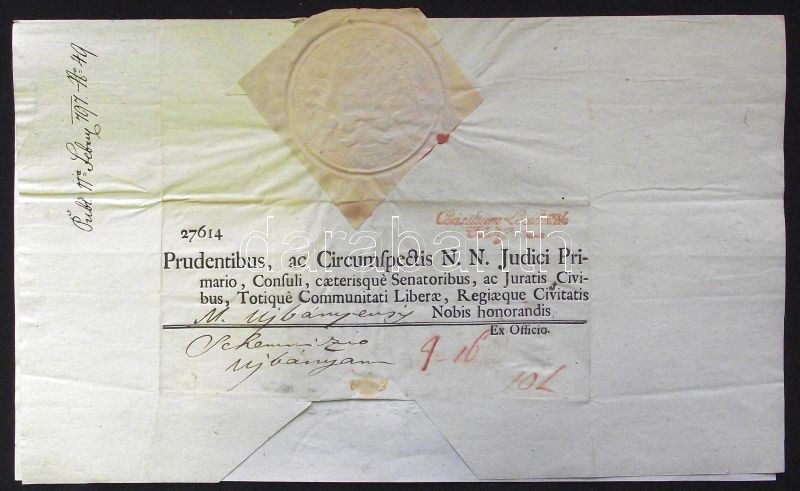 Publ. 11a Febru 797. No 49
27614
Prudentibus, ac Circumſpectis N. N. Judici Pri-
mario, Conſuli, cæterisquè Senatoribus, ac Juratis Civi-
bus, Totiquè Communitati Liberæ, Regiæque Civitatis
M. Ujbányensis Nobis honorandis
Ex Officio.
Schemnizio
Ujbányam
9-16
darabanth